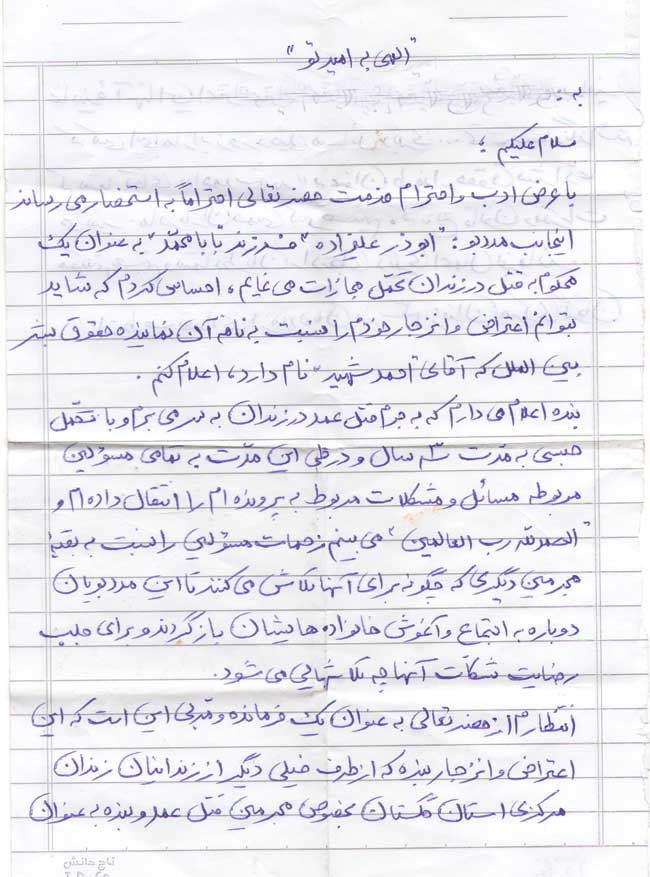 "الهی به امید تو"
به:
سلام علیکم؛
با عرض ادب و احترام خدمت حضرتعالی احتراماً به استحضار می رساند
اینجانب مددجو: "ابوذر علیزاده" فرزند "بابامحمد" به عنوان یک
محکوم به قتل در زندان تحمّل مجازات می نمایم، احساس کردم که شاید
بتوانم اعتراض و انزجار خودم را نسبت به نامه آن نماینده حقوق بشر
بین الملل که آقای "احمد شهید" نام دارد، اعلام کنم.
بنده اعلام می دارم که به جرم قتل عمد در زندان به سر می برم و با تحمّل
حبسی به مدّت سال و در طی این مدّت به تمامی مسؤلین
مربوطه مسائل و مشکلات مربوط به پرونده ام را انتقال داده ام و
"الحمدلله رب العالمین" می بینم زحمات مسؤلین را نسبت به بقیه
مجرمین دیگری که چگونه برای آنها تلاش می کنند تا این مددجویان
دوباره به اجتماع و آغوش خانواده هایشان بازگردند و برای جلب
رضایت شکّات آنها چه تلاشهایی می شود.
انتظارم از حضرتعالی به عنوان یک فرمانده و مربّی این است که این
اعتراض و انزجار بنده که از طرف خیلی دیگر از زندانیان زندان
مرکزی استان گلستان بخصوص مجرمین قتل عمد و بنده به عنوان
تاج دانش